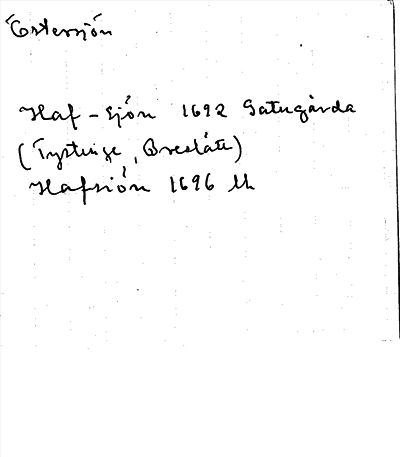 Östersjön
Haf-Sjön 1692 Gatugårda
(Tystinge, Breslätt)
Hafsiön 1696 Lk